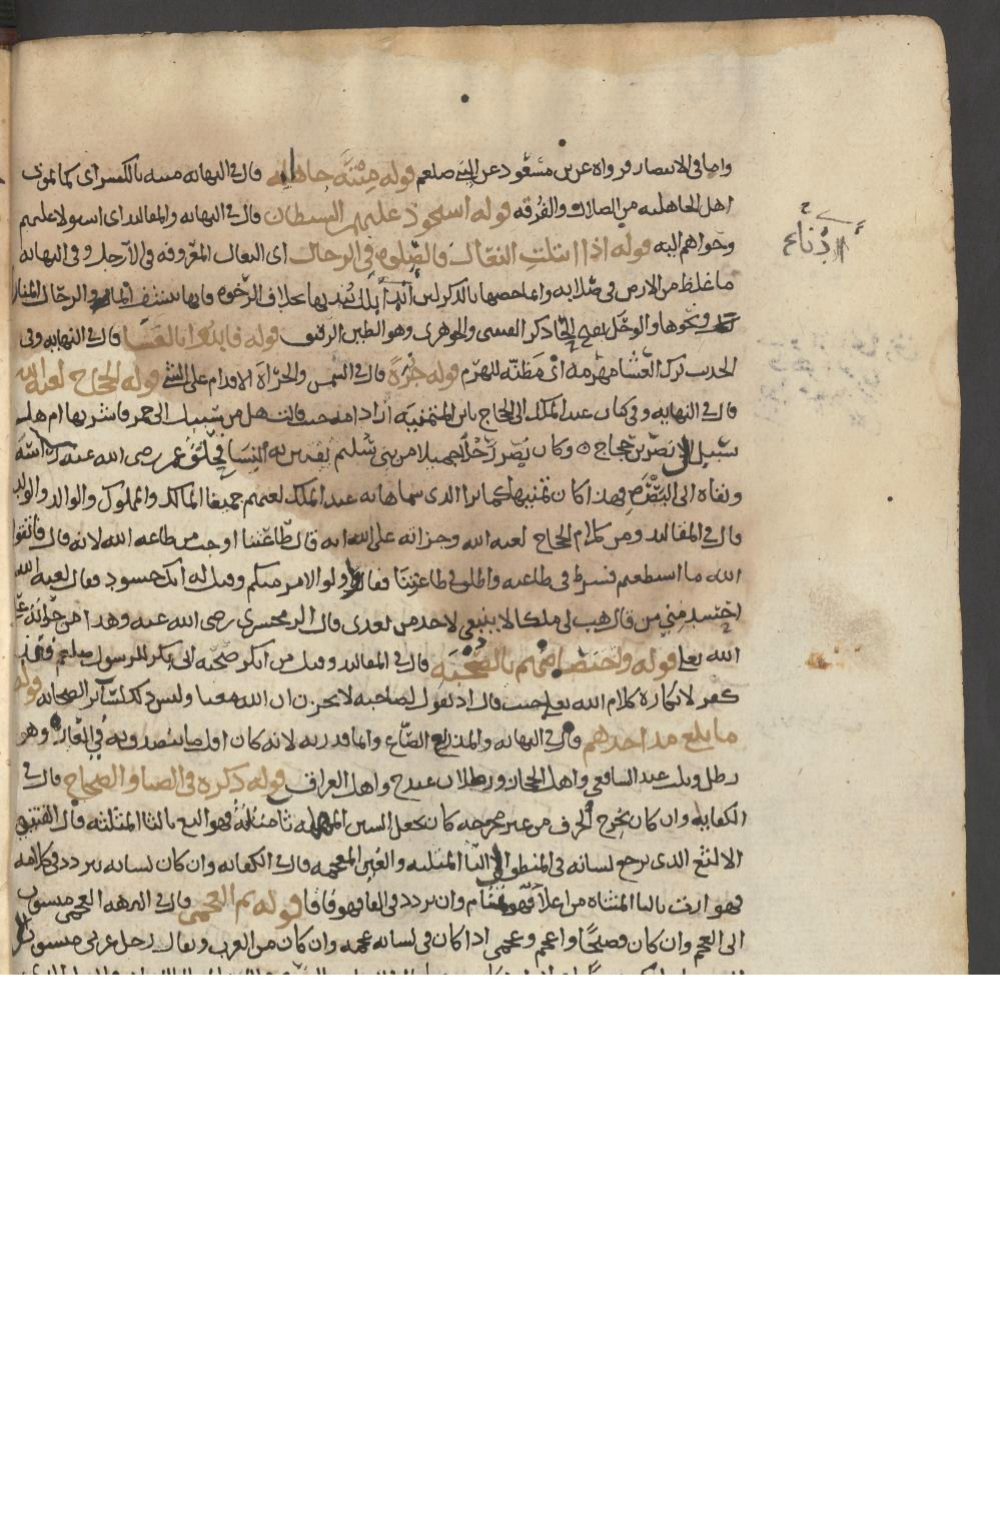 واما في الانتصار فرواه عن بن مسعود عن النبي صلعم قوله مِيْتَة جاهلية قال في النهاية ميتة بالكسر اي كما يموت
اهل الجاهلية من الضلال والفرقة قوله استحوذ عليهم الشيطان قال في النهاية والمقاليد اي استولا عليهم
وحواهم اليه قوله اذا ابتلت النعال فالصلوة في الرحال اى النعال المعروفه في الأرجل وفي النهاية
ما غلظ من الارض في صلابه وانما خصها بالذكر لان أدنا بلل يُنديها بخلاف الرخوه فانها تنشف الماء والرحال المنازل
ونحوها والوحَل بفتح الحا ذكر العيسى والجوهرى وهو الطين الرقيق قوله فابدؤا بالعَشَا قال في النهايه وفي
الحديث ترك العشا مهرمه اى مَظنّه للهرَم قوله جُرْءَةً قال في الشمس والجرأة الاقدام على الشي قوله الحجاج لعنه الله
قال في النهايه وفي كتاب عبد الملك الى الحجاج يابن المتمنيه اراد امه حيث قالت هل من سبيل الى خمر فاشربها ام هل
سبيل الى نصر بن حجاج ٥ وكان نصر رَجُلاً جميلا من بني سُليم يفتتن به النسا فحلق عمر رضى الله عنه راسه
ونفاه الى البصره فهذا كان تمنيها كما برا الذى سماها به عبد الملك لعنهم جميعا المالك والمملوك والوالد والولد
قال في المقاليد ومن كلام الحجاج لعنه الله وجراته على الله انه قال طاعتنا اوجب من طاعه الله لانه قال فاتقوا
الله ما استطعتم فشرط في طاعته واطلق في طاعتنا فقال واولوا الامر منكم وقيل له انك حسود فقال لعنه الله
احسد مني من قال هب لي ملكا لا ينبغي لاحد من بعدى قال الزمحشرى رضى الله عنه وهذا من جرأته على
الله تعالى قوله واختصاصهم بالصُّحْبَه قال في المقاليد وقيل من انكر صحبة ابي بكر للرسول صلعم فقد
كفر لانكاره كلام الله تعالى حيث قال اذ يقول لصاحبه لا تحزن ان الله معنا وليس ذلك لسآير الصحابه قوله
ما بلغ مد احدهم قال في النهايه والمد ربع الصّاع وانما قدر به لانه كان اقل ما يتصدقونه في العادة وهو
رطل وثلث عند الشافعي واهل الحجاز ورطلان عند ح واهل العراق قوله ذكره في الضيا والصحاح قال في
الكفايه وان كان يُخرِج الحرف من غير مخرجه كان يجعل السين المهمله ثا مُثلثةً فهو الثغ بالثا المثلثه قال القتيبي
الالثغ الذى يرجع لسانه في المنطق الى الثا المثلثه والغين المعجمه قال في الكفايه وان كان لسانه يتردد في كلامه
فهو ارت بالتا المثناه من اعلا فهو تمتام وان تردد في الفا فهو فأفا قوله ثم العجمى قال في النزهه العجمى منسوب
الى العجم وان كان فصيحًا واعجم وعجمى اذا كان في لسانه عجمه وان كان من العرب ويقال رجل عربى منسوب